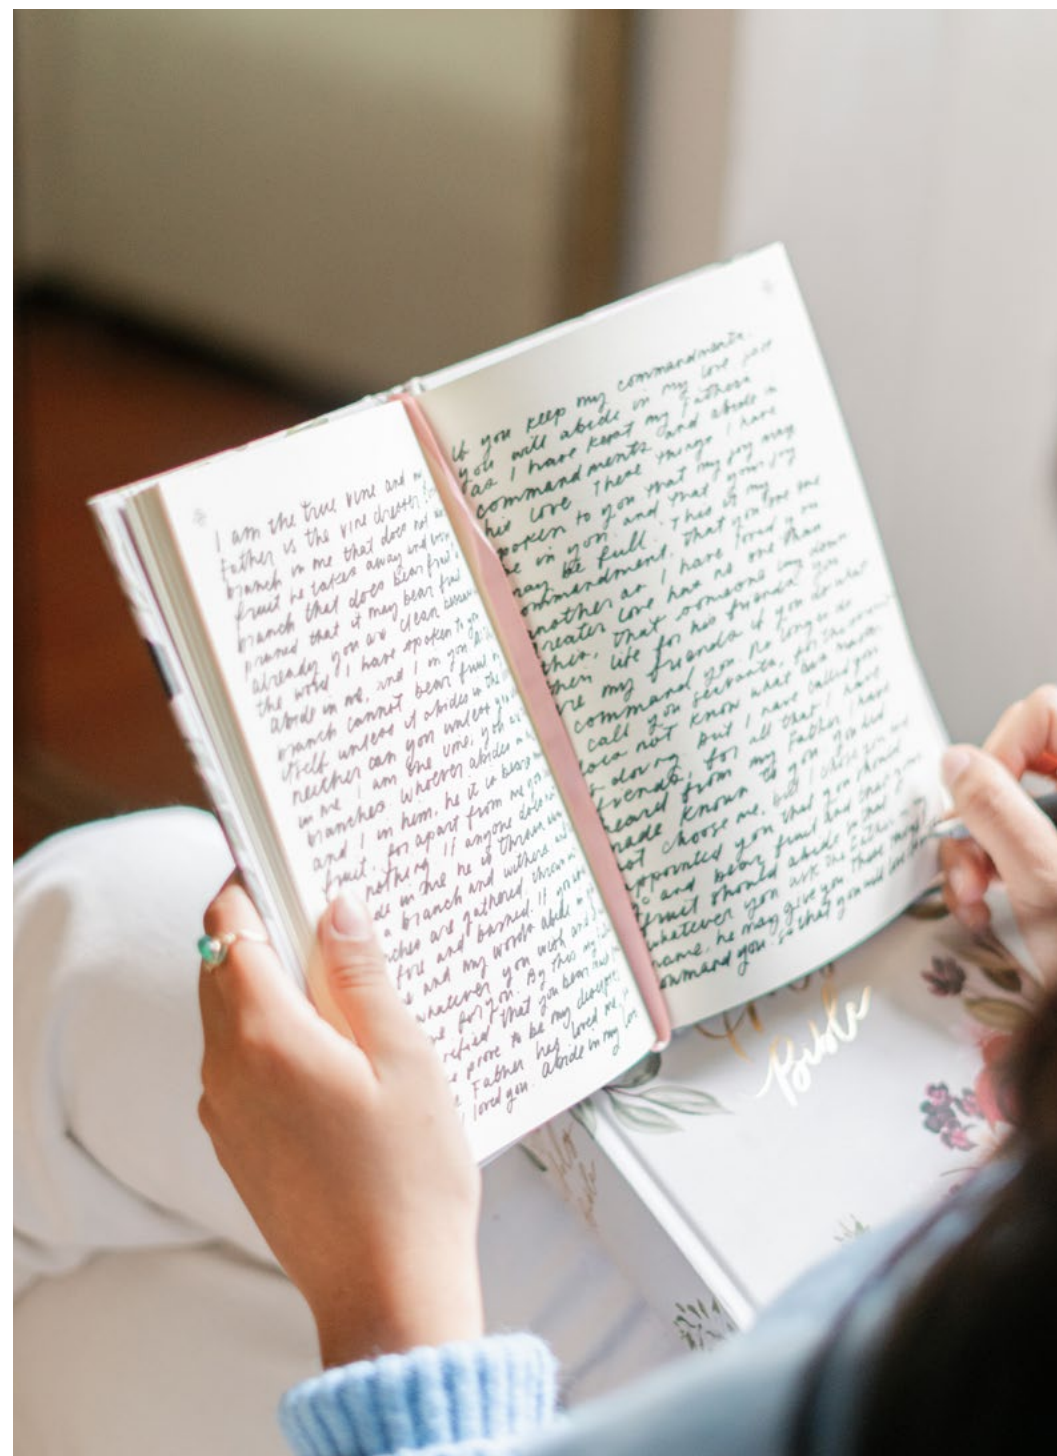 I am the true vine and my
Father is the vine dresser
branch in me that does not
fruit he takes away and
branch that does bear fruit
pruned that it may bear
already you are clean because
the word I have spoken to you
Abide in me, and I in you
branch cannot bear fruit
itself unless it abides in the
neither can you unless you
in me I am the vine, you
branches. Whoever abides in
and I in him, he it is
fruit. for apart from me you
nothing If anyone does not
in me he is thrown
a branch and withers and
are gathered, thrown
fire and burned. If you
and my words abide in
whatever you wish, and
for you. By this my
that you bear
prove to be my disciples
Father has loved me,
loved you. Abide in my
If you keep my commandments.
you will abide in my love just
as I have kept my Fathers
commandments and abide in
his love. These things I have
spoken to you that my joy may
be in you and that your joy
may be full. This is my
commandment, that you love one
another as I have loved you
greater love has no one than
this, that someone lay down
their life for his friends. you
are my friends if you do
command you. No longer do
call you servants, for the servant
does not know what his master
is doing But I have called you
friends, for all that I have
heard from my Father I have
made known to you you did
not choose me, but I chose you and
appointed you that you should
go and bear fruit and that your
fruit should abide so that
whatever you ask the Father in
name, he may give you these things
command you so that you will love
Bible